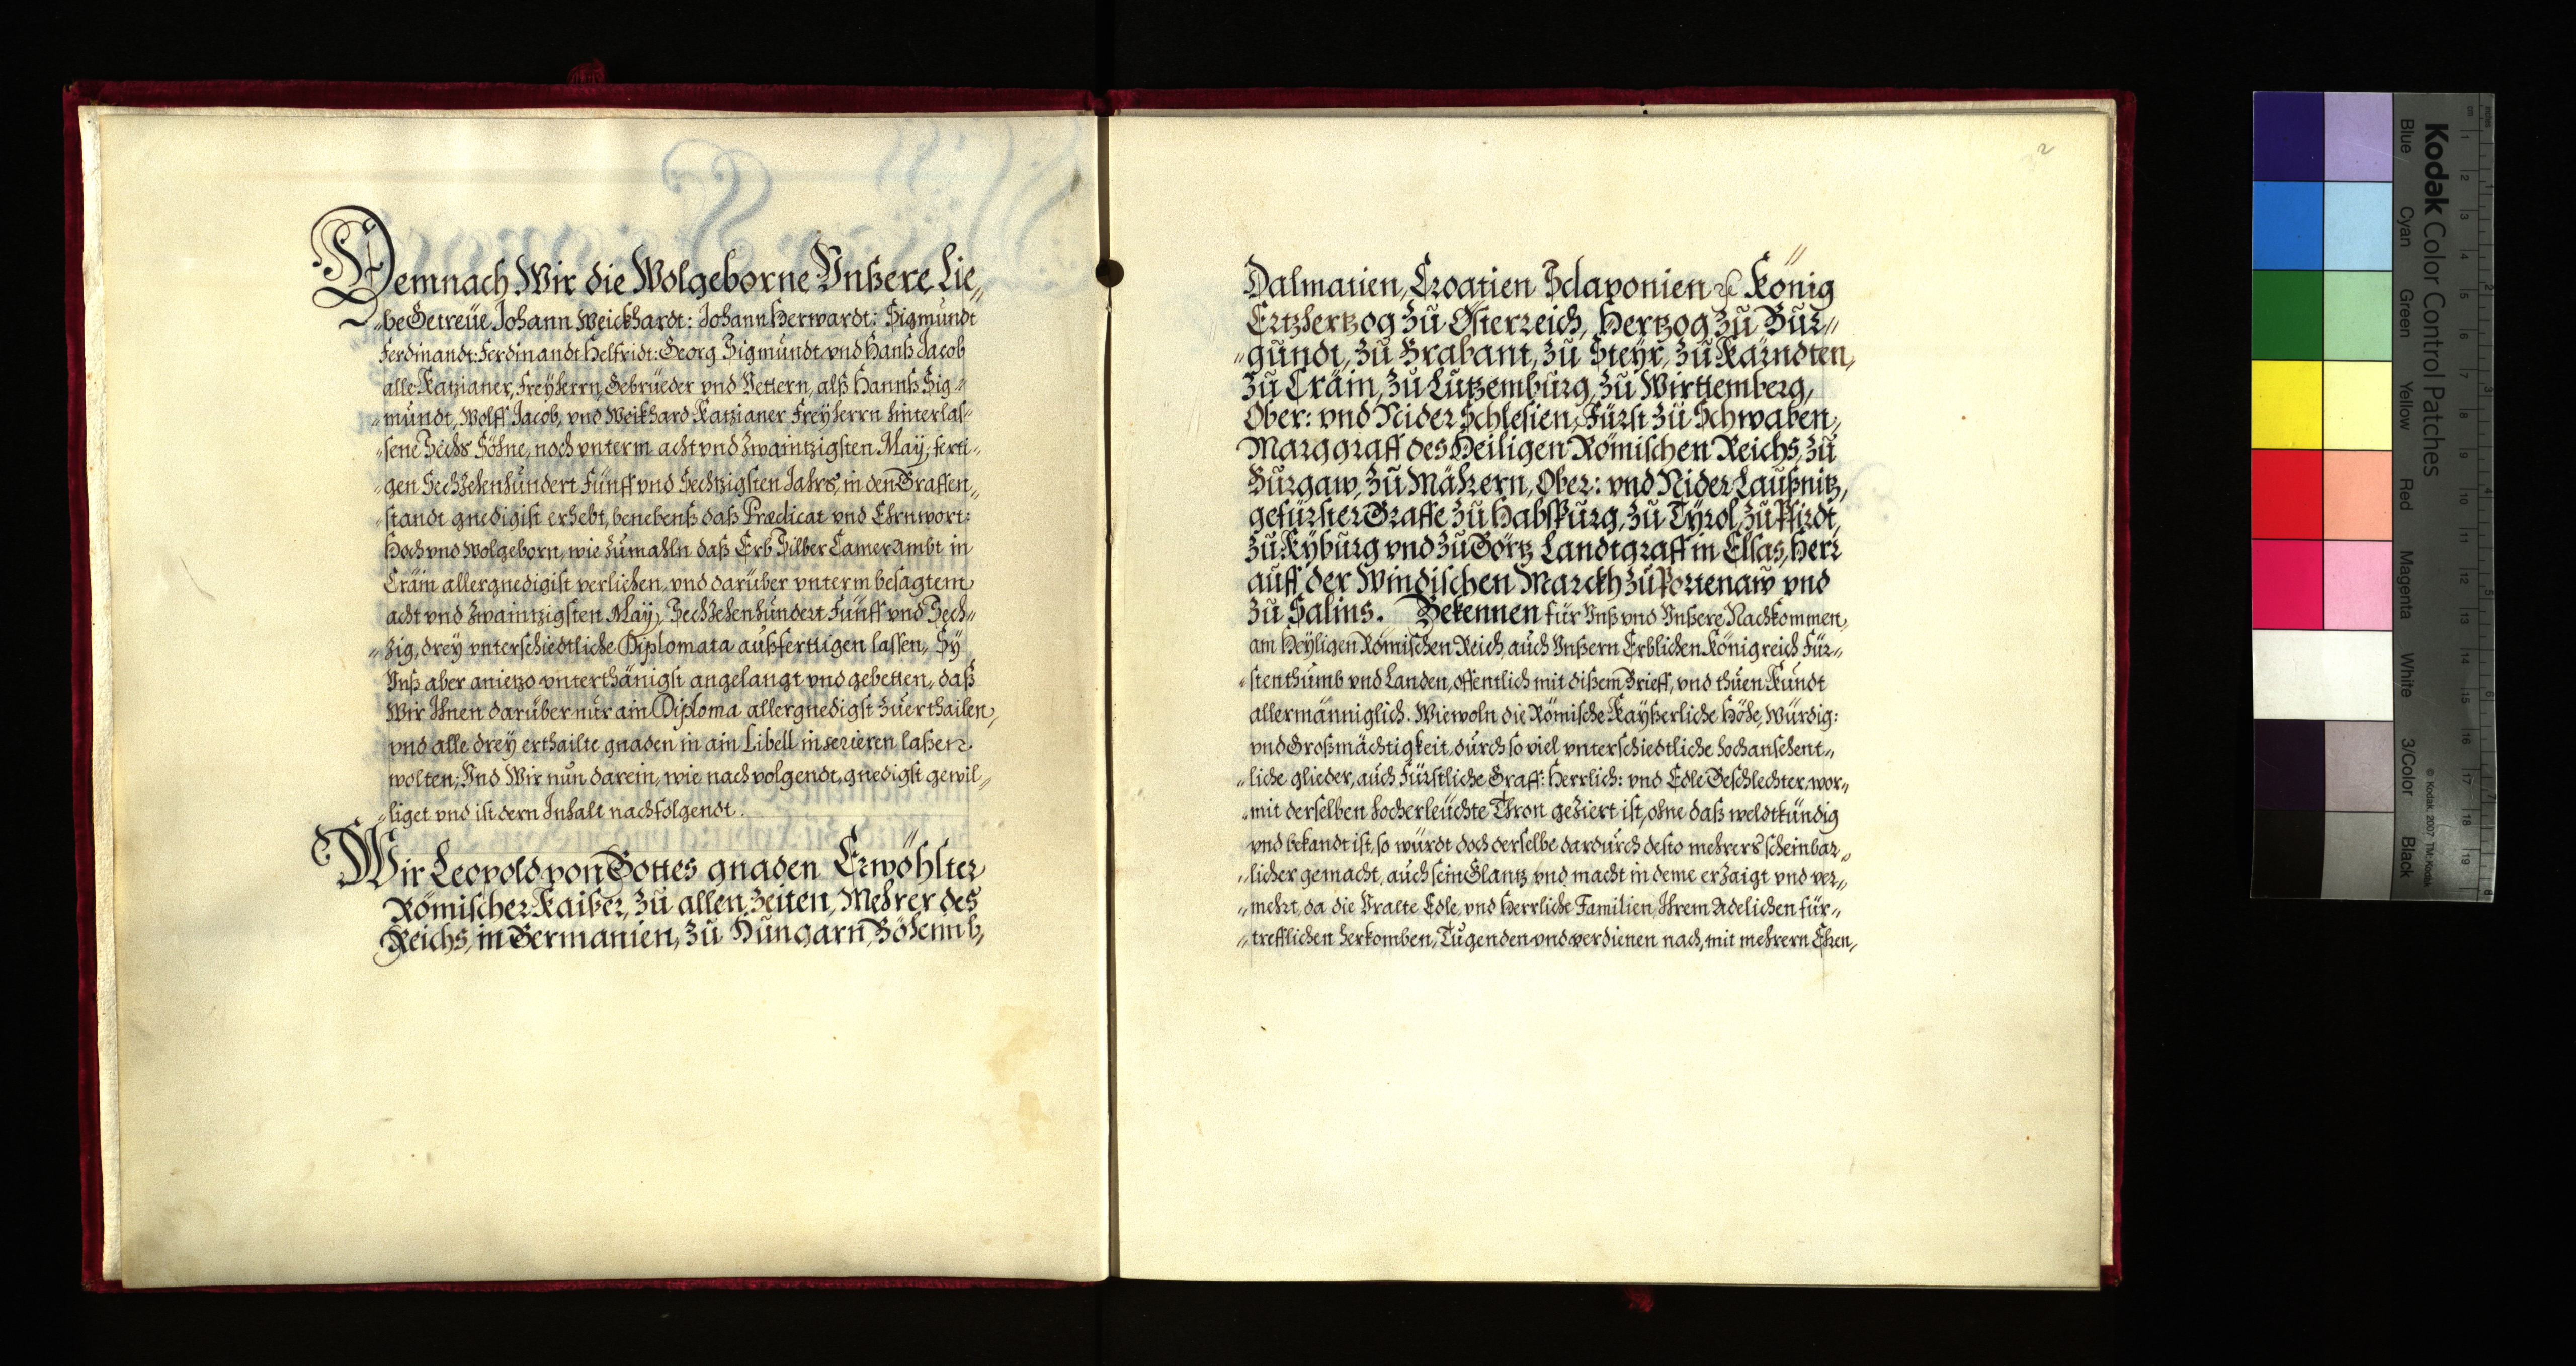 Demnach Wir die Wolgeborne Vnßere Lie„
„be Getreüe Johann Weickhardt: Johann Herwardt: Sigmundt
Ferdinandt: Ferdinandt Helfridt: Georg Sigmundt vnd Hanß Jacob
alle Katzianer, Freyherrn, Gebrüeder vnd Vettern, alß Hannß Sig„
„mundt, Wolff Jacob, vnd Weikhard Katzianer Freyherrn hinterlas„
„sene Sechs Söhne, noch vnterm acht vnd zwaintzigsten May, ferti„
„gen Sechzehenhundert Fünff vnd Sechtzigsten Jahrs, in den Graffen„
„standt gnedigist erhebt, benebenß daß Prædicat vnd Ehrnwort:
Hoch vnd Wolgeborn, wie zumahln daß Erb Silber Camer Ambt in
Cräin allergnedigist verlichen, vnd darüber vnterm besagtem
acht vnd zwaintzigsten May, Sechzehenhundert Fünff vnd Sech„
„zig, drey vnterschiedtliche Diplomata außfertigen lassen, Sÿ
Vnß aber anietzo vnterthänigst angelangt vnd gebetten, daß
Wir Ihnen darüber nur ain Diploma allergnedigst zuerthailen,
vnd alle drey erthailte gnaden in ain Libell inserieren laßen
wolten; Vnd Wir nun darein, wie nachvolgendt, gnedigst gewil„
„liget vnd ist dern Inhalt nachfolgendt.
Wir Leopold von Gottes gnaden Erwöhlter
Römischer Kaiser, zu allen Zeiten, Mehrer des
Reichs, in Germanien, zu Hungarn, Böhemb,
2
Dalmatien, Croatien Sclavonien &c König
Ertzhertzog zu Österreich, Hertzog zu Bur„
„gundt, zu Brabant, zu Steÿr, zu Kärndten,
zu Cräin, zu Lutzemburg, zu Wirttemberg,
Ober: vnd Nider Schlesien, Fürst zu Schwaben,
Marggraff des Heiligen Römischen Reichs, zu
Burgaw, zu Mährern, Ober: vnd Nider Laußnitz,
gefürster Graffe zu Habspurg, zu Tÿrol, zu Pfirdt,
zu Kÿburg vnd zu Görtz Landtgraff in Elsas, Herr
auff der Windischen Marckh zu Portenaw vnd
zu Salins. Bekennen für Vnß vnd Vnßere Nachkommen,
am Heyligen Römischen Reich, auch Vnßern Erblichen Königreich Für„
„stenthumb vnd Landen, offentlich mit dißem Brieff, vnd thuen Kundt
allermänniglich. Wiewoln die Römische Kayßerliche Höhe, Würdig:
vnd Großmächtigkeit, durch so viel vnterschiedtliche hochansehent„
„liche glieder, auch Fürstliche Graff: Herrlich: vnd Edle Geschlechter, wor„
„mit derselben hocherleüchte Thron geziert ist, ohne daß weldtkündig
vnd bekandt ist, so würdt doch derselbe dardurch desto mehrers scheinbar„
„licher gemacht, auch sein Glantz vnd macht in deme erzaigt vnd ver„
„mehrt, da die Vralte Edle, vnd Herrliche Familien, Ihrem Adelichen für„
„trefflichen herkomben, Tugenden vnd verdienen nach, mit mehrern Ehren„
Kodak Color Control Patches
Blue
Cyan
Green
Yellow
Red
Magenta
White
3/Color
Black
© Kodak, 2007 TM: Kodak